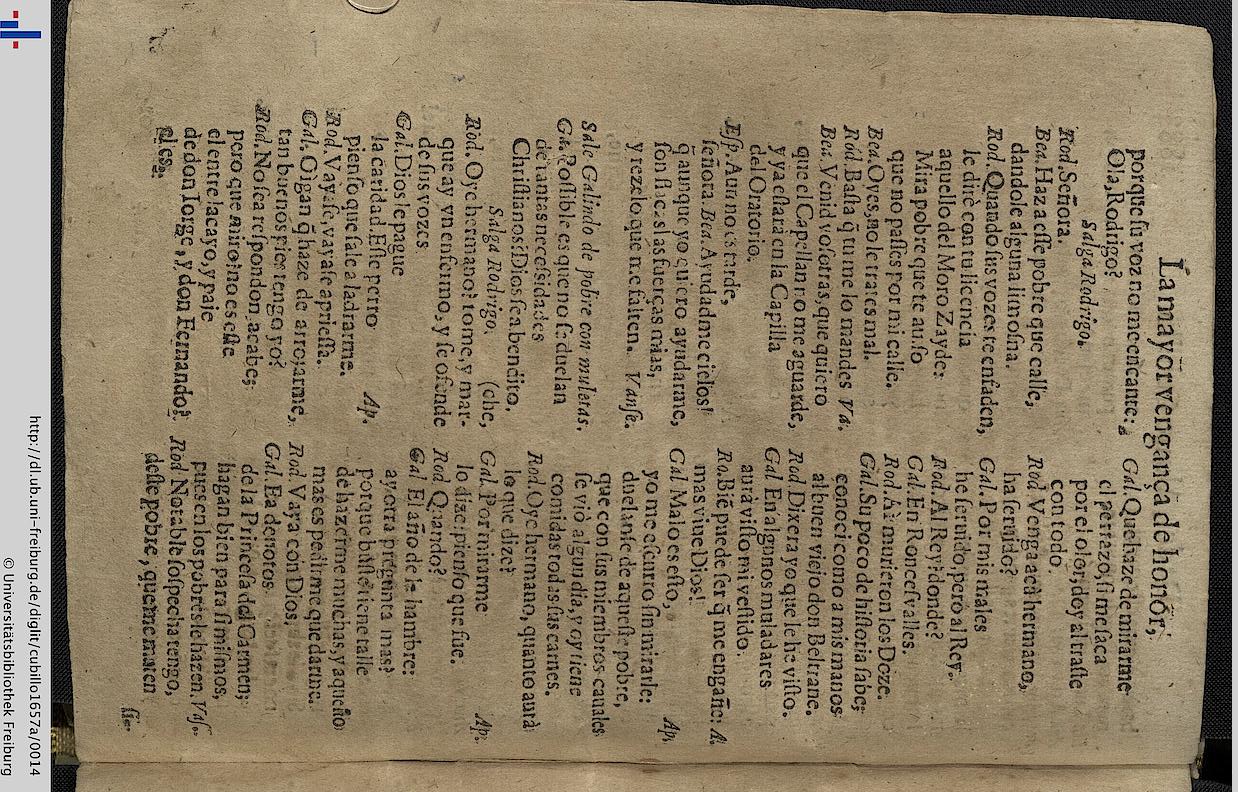 La mayor vengança de honor,
porque su voz no me encante:
Ola, Rodrigo?
Salga Rodrigo.
Rod. Señora.
Bea. Haz a esse pobre que calle,
dandole alguna limosna.
Rod. Quando sus vozes te enfaden,
le dirè con tu licencia
aquello del Moro Zayde:
Mira pobre que te auiso
que no passes por mi calle,
Bea. Oyes, no le trates mal.
Rod. Basta q̃ tu me lo mandes Va.
Bea. Venid vosotras, que quiero
que el Capellan no me aguarde,
y ya estarà en la Capilla
del Oratorio.
Esp. Aun no es tarde,
señora. Bea. Ayudadme cielos!
q̃ aunque yo quiero ayudarme,
son flacas las fuerças mias,
y rezelo que me falten. Vanse.
Sale Galindo de pobre con muletas.
Ga. Possible es que no se duelan
de tantas necessidades
Christianos! Dios sea bendito.
Salga Rodrigo. (che,
Rod. Oye hermano? tome, y mar-
que ay vn enfermo, y se ofende
de sus vozes
Gal. Dios le pague
la caridad. Este perro Ap.
pienso que sale a ladrarme.
Rod. Vayase, vayase apriessa.
Gal. Oigan q̃ haze de arrojarme,
tan buenos pies tengo yo?
Rod. No sea respondon, acabe;
pero que miro! no es este
el entre lacayo, y paje
de don Iorge, y don Fernando?
el es.
Gal Que haze de mirarme
el perrazo, si me saca
por el olor, doy al traste
con todo.
Rod. Venga acà hermano,
ha seruido?
Gal. Por mis males
he seruido, pero al Rey.
Rod. Al Rey? donde?
Gal. En Roncesvalles.
Rod. Ai murieron los Doze.
Gal. Su poco de historia sabe;
conoci como a mis manos
al buen viejo don Beltrane.
Rod Dixera yo que le he visto.
Gal En algunos muladares
aurà visto mi vestido.
Ro. Biẽ puede ser q̃ me engañe: A.
mas viue Dios!
Gal Malo es esto, Ap.
yo me escurro sin mirarle:
duelanse de aqueste pobre,
que con sus miembros cauales
se viò algun dia, y oy tiene
comidas todas sus carnes.
Rod. Oye hermano, quanto aurà
lo que dize?
Gal. Por mirarme Ap.
lo dize, pienso que fue.
Rod Quando?
Gal El año de la hambre:
ay otra pregunta mas?
porque biste tiene talle
de hazerme muchas, y aquesto
mas es pedirme que darme.
Rod Vaya con Dios.
Gal. Ea deuotos
de la Princesa del Carmen;
hagan bien para si mismos,
pues en los pobres le hazen. Vas.
Rod Notable sospecha tengo,
deste pobre, que me maten
http://dl.ub.uni-freiburg.de/diglit/cubillo1657a/0014
© Universitätsbibliothek Freiburg